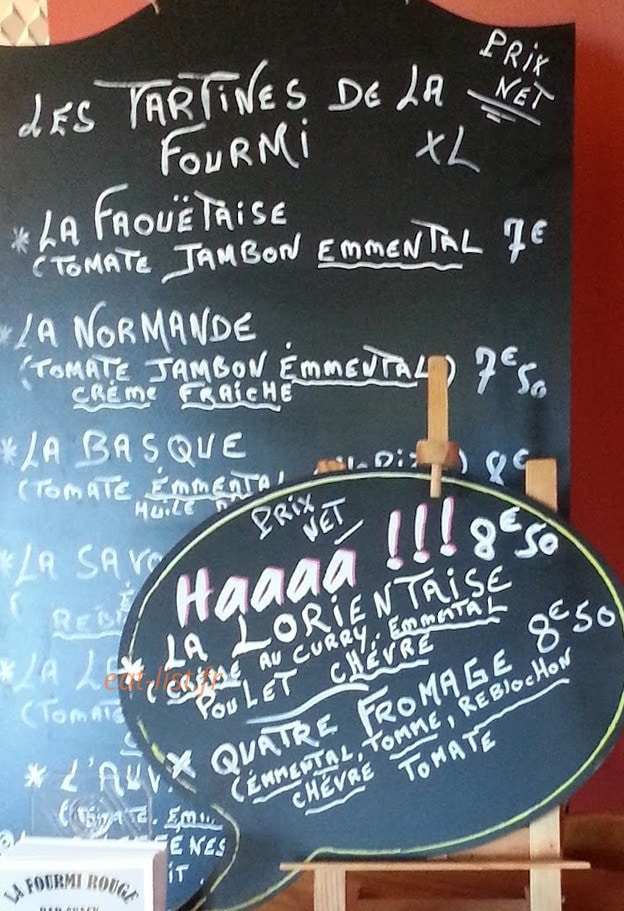 PRIX
NET
LES TARTINES DE LA
FOURMI XL
* LA FAOUËTAISE
(TOMATE JAMBON EMMENTAL 7€
* LA NORMANDE
(TOMATE JAMBON EMMENTAL) 7€50
CRÈME FRAICHE
* LA BASQUE
(TOMATE EMMENTAL 8€
HUILE
* LA
* LA
(TOMATE
* L'AUV
PRIX
NET
Haaaa !!! 8€50
* LA LORIENTAISE
(CRÈME AU CURRY, EMMENTAL
POULET CHÈVRE
* QUATRE FROMAGE 8€50
(EMMENTAL, TOMME, REBLOCHON
CHÈVRE TOMATE
eat-list.fr
LA FOURMI ROUGE